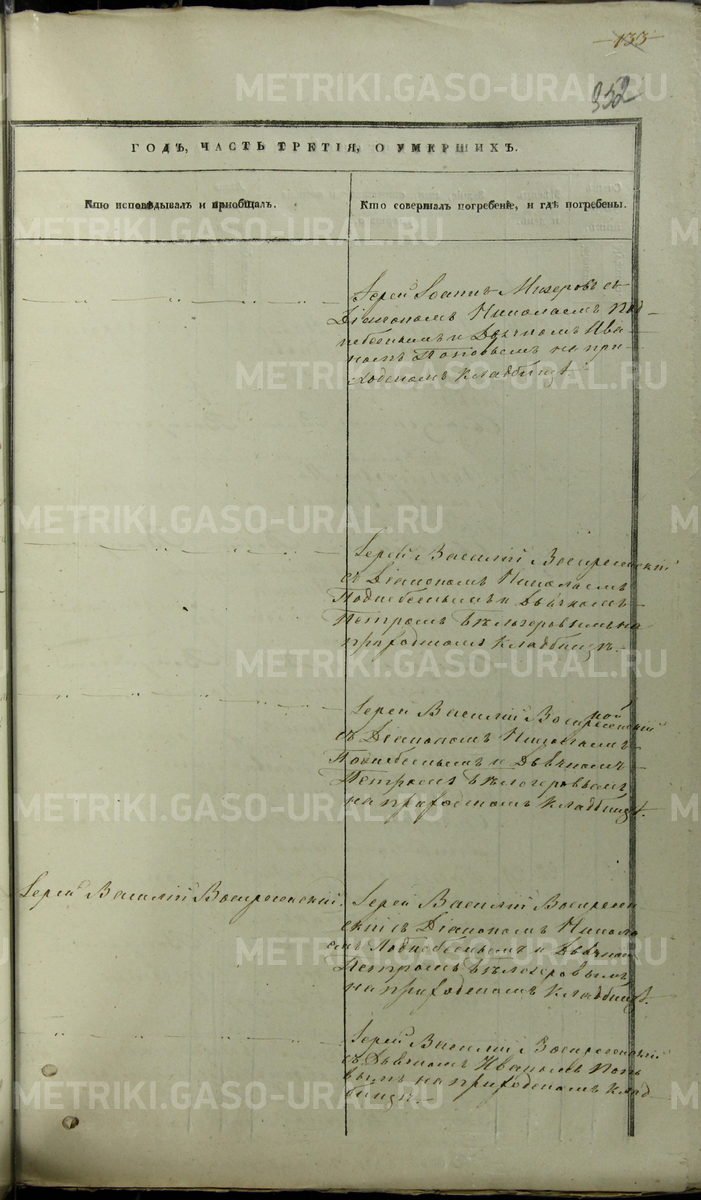 133
352
ГОДѢ, ЧАСТЬ ТРЕТІЯ, О УМЕРШИХЪ.
Кто исповѣдывалъ и пріобщалъ.
Кто совершалъ погребеніе, и гдѣ погребены.
Іерей Іоаннъ Мизеровъ съ
Діакономъ Николаемъ Под
небеснымъ и Дьячкомъ Ива
номъ Поповымъ на при
ходскомъ кладбищѣ.
Іерей Василій Воскресенскій
съ Діакономъ Николаемъ
Поднебеснымъ и Дьячкомъ
Петромъ Бѣлозеровымъ на
приходскомъ кладбищѣ.
Іерей Василій Воскресенскій
съ Діакономъ Николаемъ
Поднебеснымъ и Дьячкомъ
Петромъ Бѣлозеровымъ
на приходскомъ кладбищѣ.
Іерей Василій Воскресенскій.
Іерей Василій Воскресен
скій съ Діакономъ Никола
емъ Поднебеснымъ и Дьячком
Петромъ Бѣлозеровымъ
на приходскомъ кладбищѣ.
Іерей Василій Воскресенскій
съ Дьячкомъ Иваномъ Попо
вымъ на приходскомъ клад
бищѣ.
METRIKI.GASO-URAL.RU